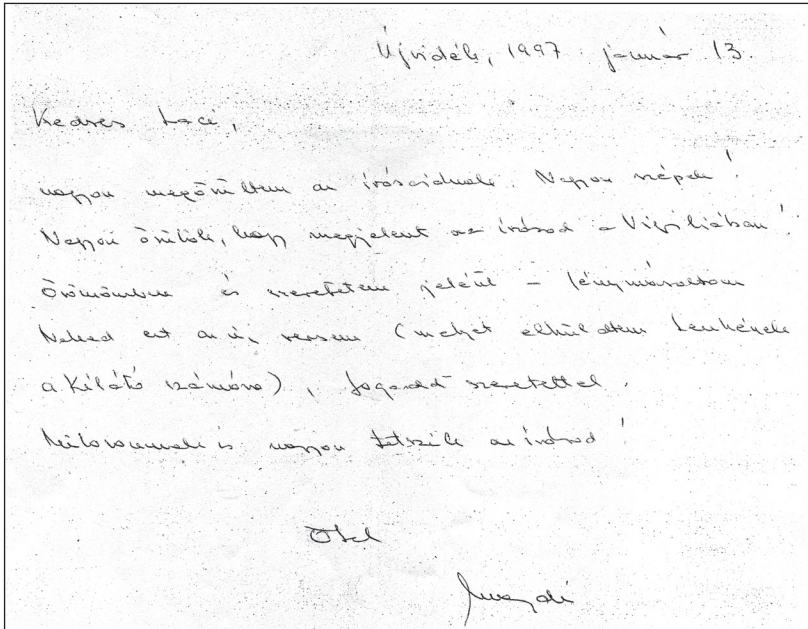 Újvidék, 1997 január 13.
Kedves Laci,
nagyon megörültem az írásaidnak. Nagyon szépek!
Nagyon örülök, hogy megjelent az írásod a Vigiliában!
Örömömben és szeretetem jeléül – fénymásoltam
Neked ezt az új versem (melyet elküldtem
a Kilátó számára), fogadd szeretettel.
is nagyon tetszik az írásod!
Ölel
Magdi